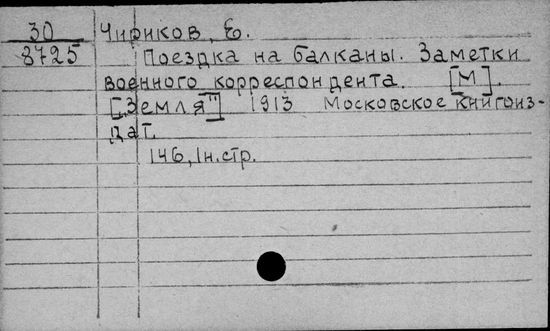 30 Чириков, Е.
8725 Поездка на балканы. Заметки
военного корреспондента. [М].
["Земля"] 1913 Московское книгоиз-
дат.
146, 1н.стр.